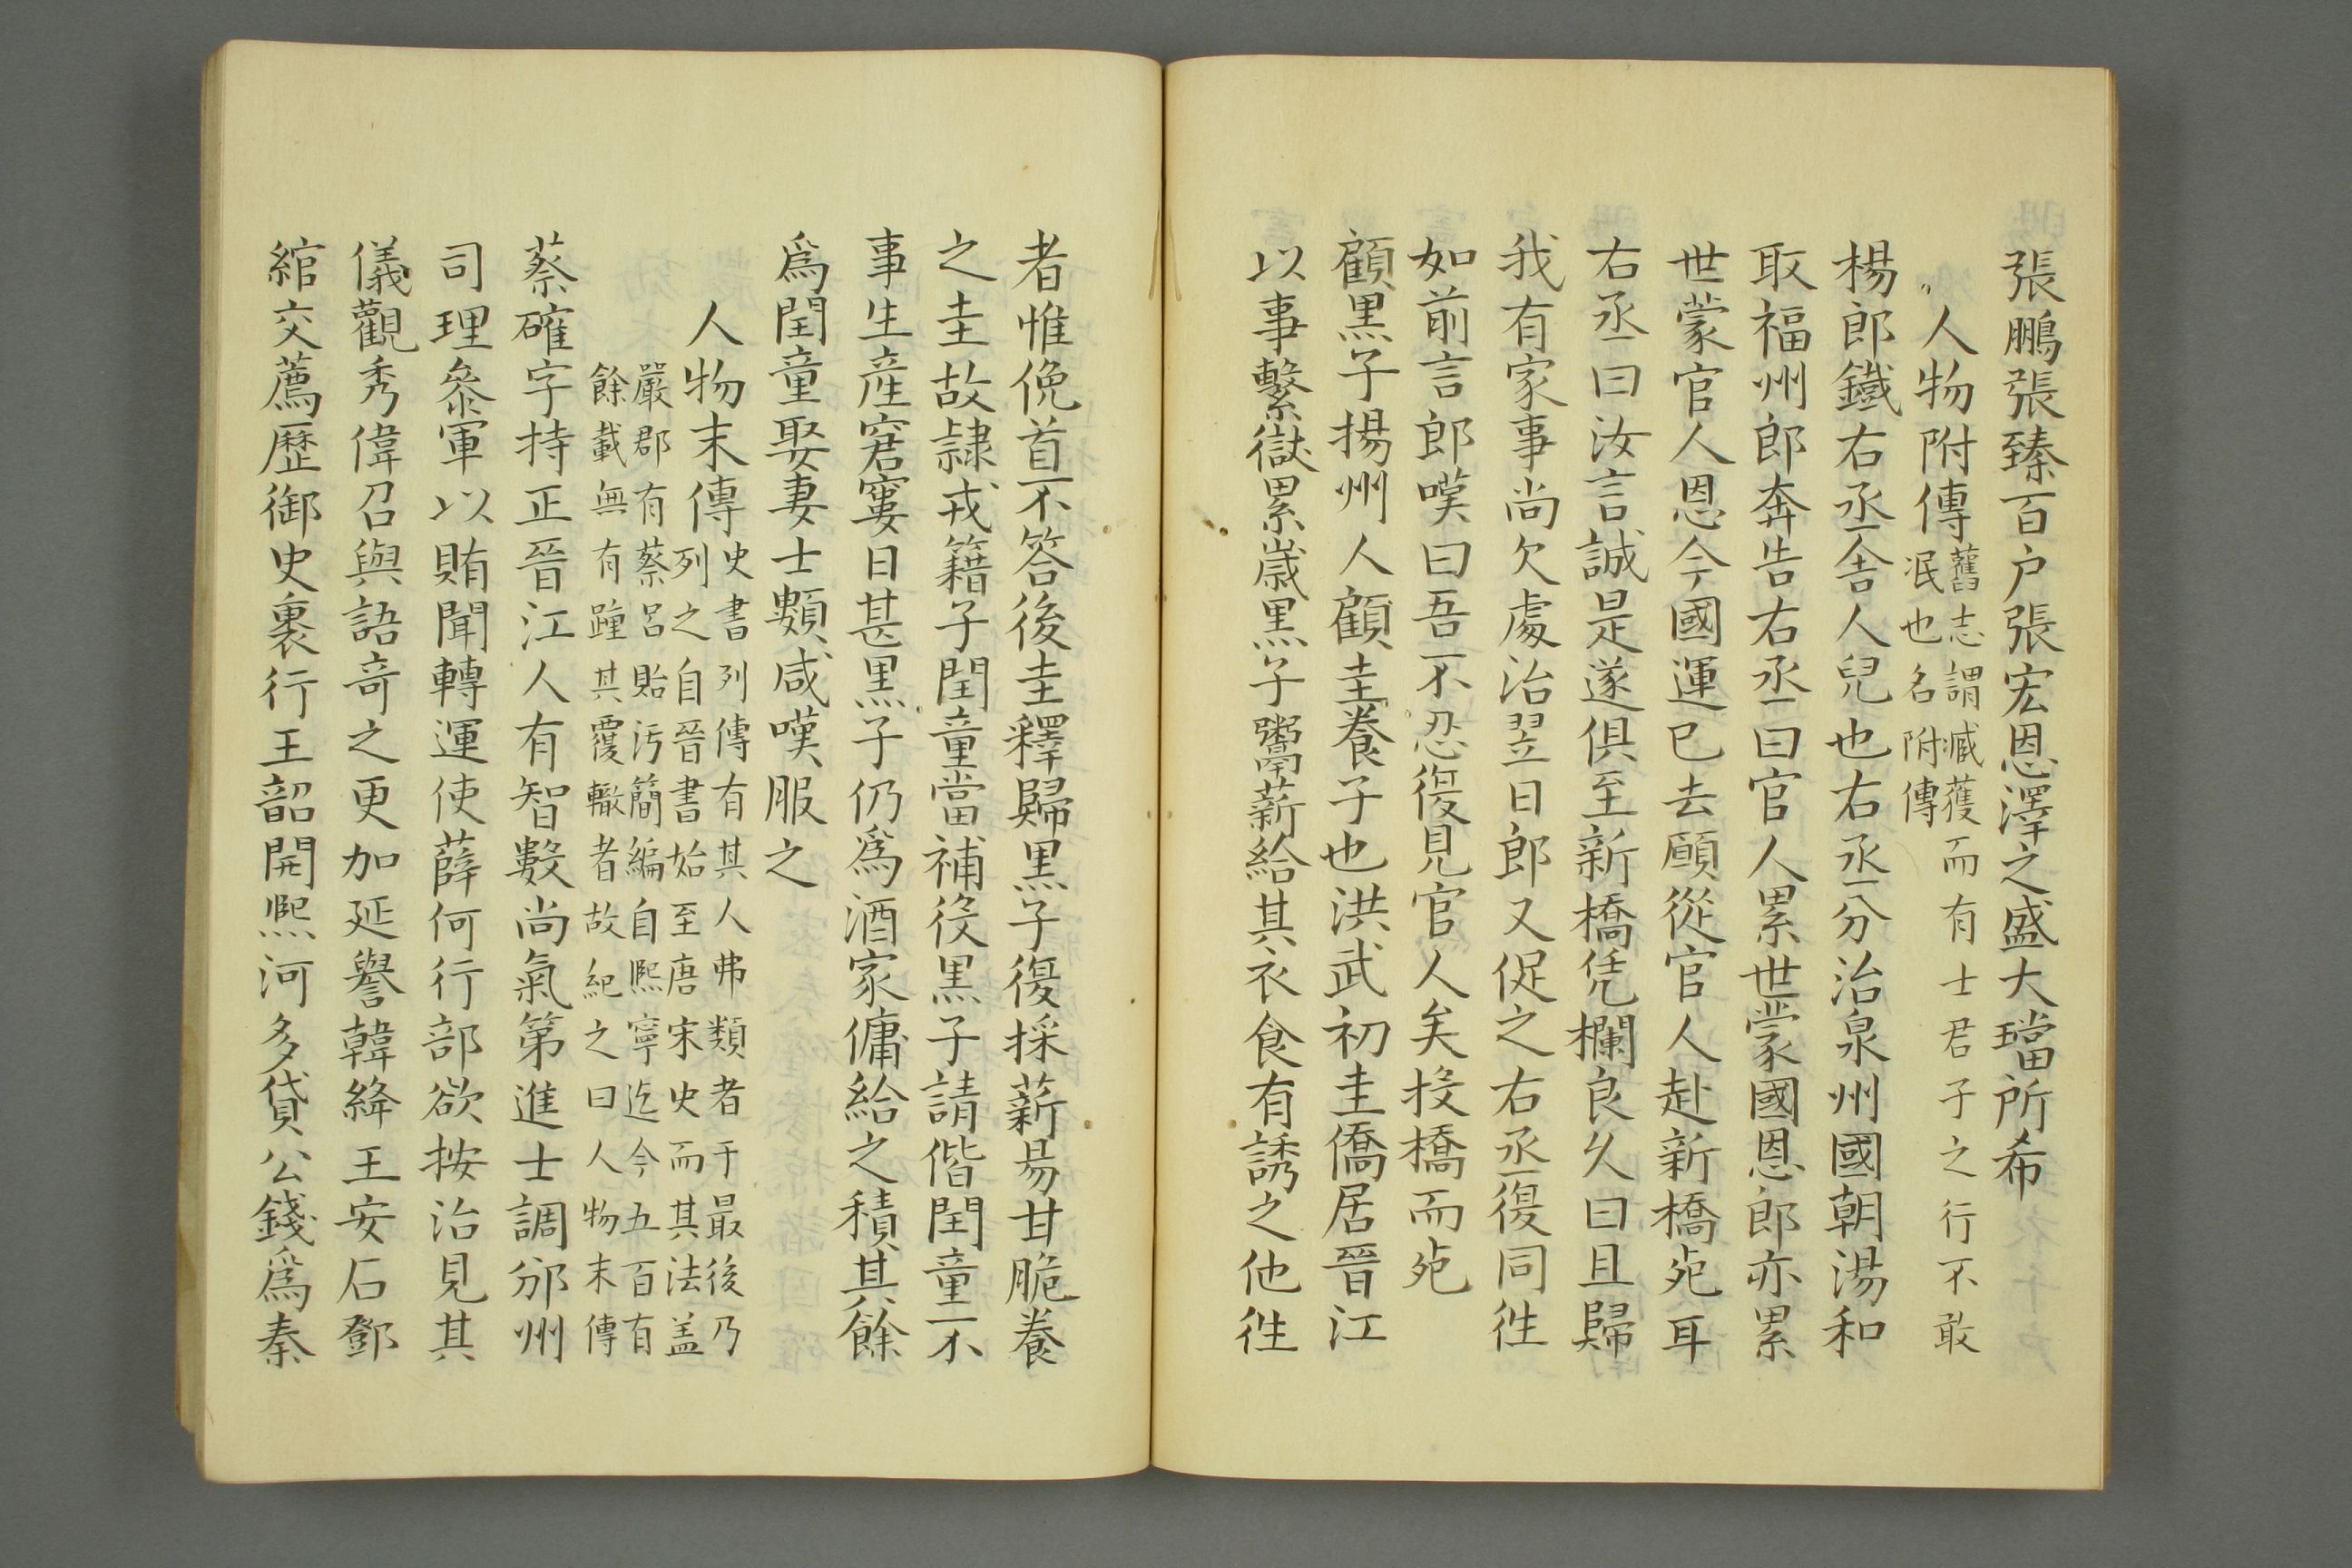 張鵬張臻百户張宏恩澤之盛大璫所希
人物附傳
舊志謂臧獲而有士君子之行不敢
泯也名附傳
楊郎鐵右丞舍人兒也右丞分治泉州國朝湯和
取福州郎奔告右丞曰官人累世蒙國恩郎亦累
世蒙官人恩今國運已去願從官人赴新橋死耳
右丞曰汝言誠是遂俱至新橋凭欄良久曰且歸
我有家事尚欠處治翌日郎又促之右丞復同徃
如前言郎嘆曰吾不忍復見官人矣投橋而死
顧黑子揚州人顧圭養子也洪武初圭僑居晉江
以事繫獄累歲黑子鬻薪給其衣食有誘之他徃
者惟俛首不答後圭釋歸黑子復採薪易甘脆養
之圭故隷戎籍子閏童當補役黑子請偕閏童不
事生産窘窶日甚黑子仍爲酒家傭給之積其餘
爲閏童娶妻士類咸嘆服之
人物末傳
史書列傳有其人弗類者于最後乃
列之自晉書始至唐宋史而其法盖
嚴郡有蔡呂貽汚簡編自熙寧迄今五百有
餘載無有踵其覆轍者故紀之曰人物末傳
蔡確字持正晉江人有智數尚氣第進士調邠州
司理叅軍以賄聞轉運使薛何行部欲按治見其
儀觀秀偉召與語奇之更加延譽韓絳王安石鄧
綰交薦歷御史裏行王韶開熙河多貸公錢爲秦